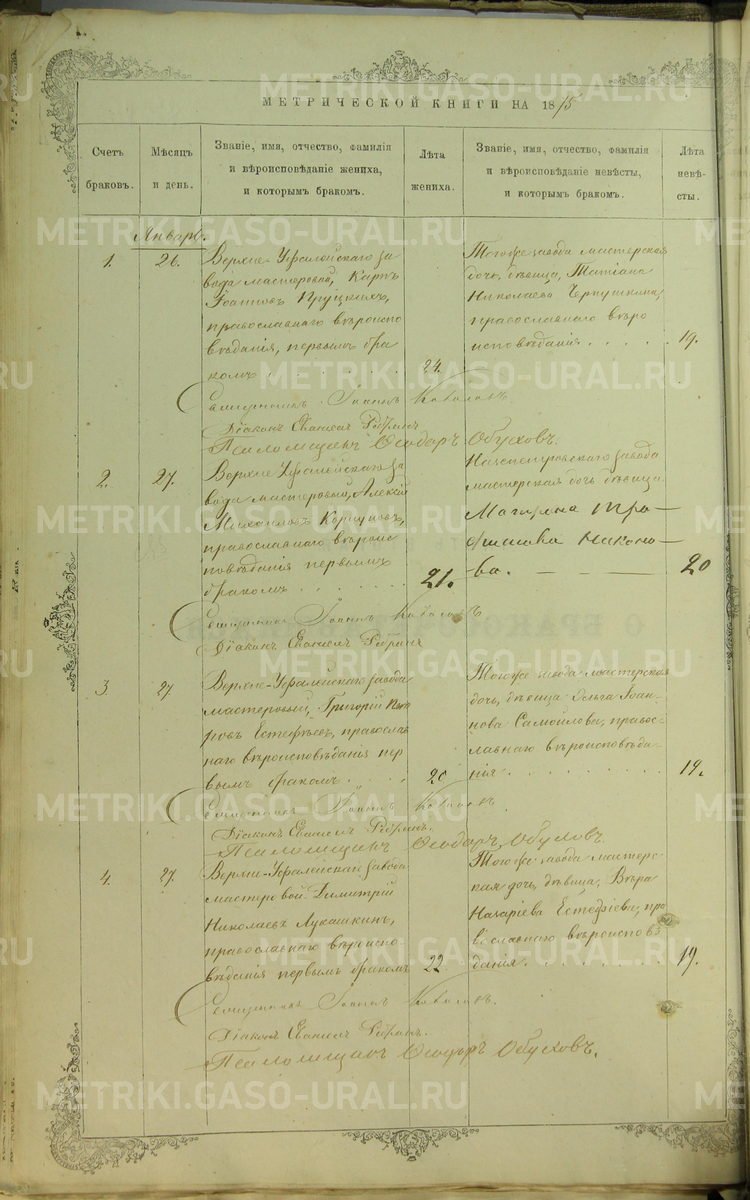 МЕТРИЧЕСКОЙ КНИГИ НА 1875
Счетъ браковъ.
Мѣсяцъ и день.
Званіе, имя, отчество, фамилія и вѣроисповѣданіе жениха, и которымъ бракомъ.
Лѣта жениха.
Званіе, имя, отчество, фамилія и вѣроисповѣданіе невѣсты, и которымъ бракомъ.
Лѣта невѣсты.
Январь.
1.
26.
Верхне-Уфалейскаго за
вода мастеровой, Карпъ
Іоанновъ
православнаго вѣроиспо
вѣданія, первымъ бра
комъ
24.
Тогоже завода мастерская
дочь, дѣвица, Татіана
Николаева
православнаго вѣро
исповѣданія
19.
Священникъ Іоаннъ
Діаконъ Евгеній
Псаломщикъ Ѳеодоръ Обуховъ.
2.
27.
Верхне-Уфалейскаго за
вода мастеровой, Алексій
Михайловъ Коршуновъ,
православнаго вѣроис
повѣданія первымъ
бракомъ
21.
Нязепетровскаго завода
мастерская дочь дѣвица
Матрена Тро-
фимова
ва.
20
Священникъ Іоаннъ
Діаконъ Евгеній
3
27
Верхне-Уфалейскаго завода
мастеровый, Григорій Пет
ровъ Естефѣевъ, православ
наго вѣроисповѣданія пер
вымъ бракомъ
20
Тогоже завода мастерская
дочь, дѣвица Ольга Іоан-
нова Самойлова, правос-
лавнаго вѣроисповѣда-
нія
19.
Священникъ Іоаннъ
Діаконъ Евгеній
Псаломщикъ Ѳеодоръ Обуховъ.
4.
27.
Верхне-Уфалейскаго завода
мастеровой Димитрій
Николаевъ Лукашкинъ,
православнаго вѣроиспо-
вѣданія первымъ бракомъ
22.
Тогоже завода мастерс-
кая дочь, дѣвица, Вѣра
Назаріева Естефѣева, пра
вославнаго вѣроисповѣ
данія
19.
Священникъ Іоаннъ
Діаконъ Евгеній
Псаломщикъ Ѳеодоръ Обуховъ.
METRIKI.GASO-URAL.RU